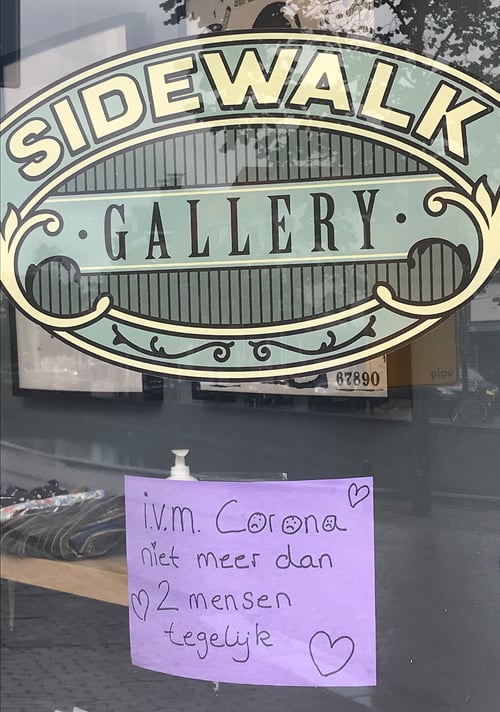 SIDEWALK
· GALLERY ·
67890
plov
i.v.m. Corona
niet meer dan
2 mensen
tegelijk